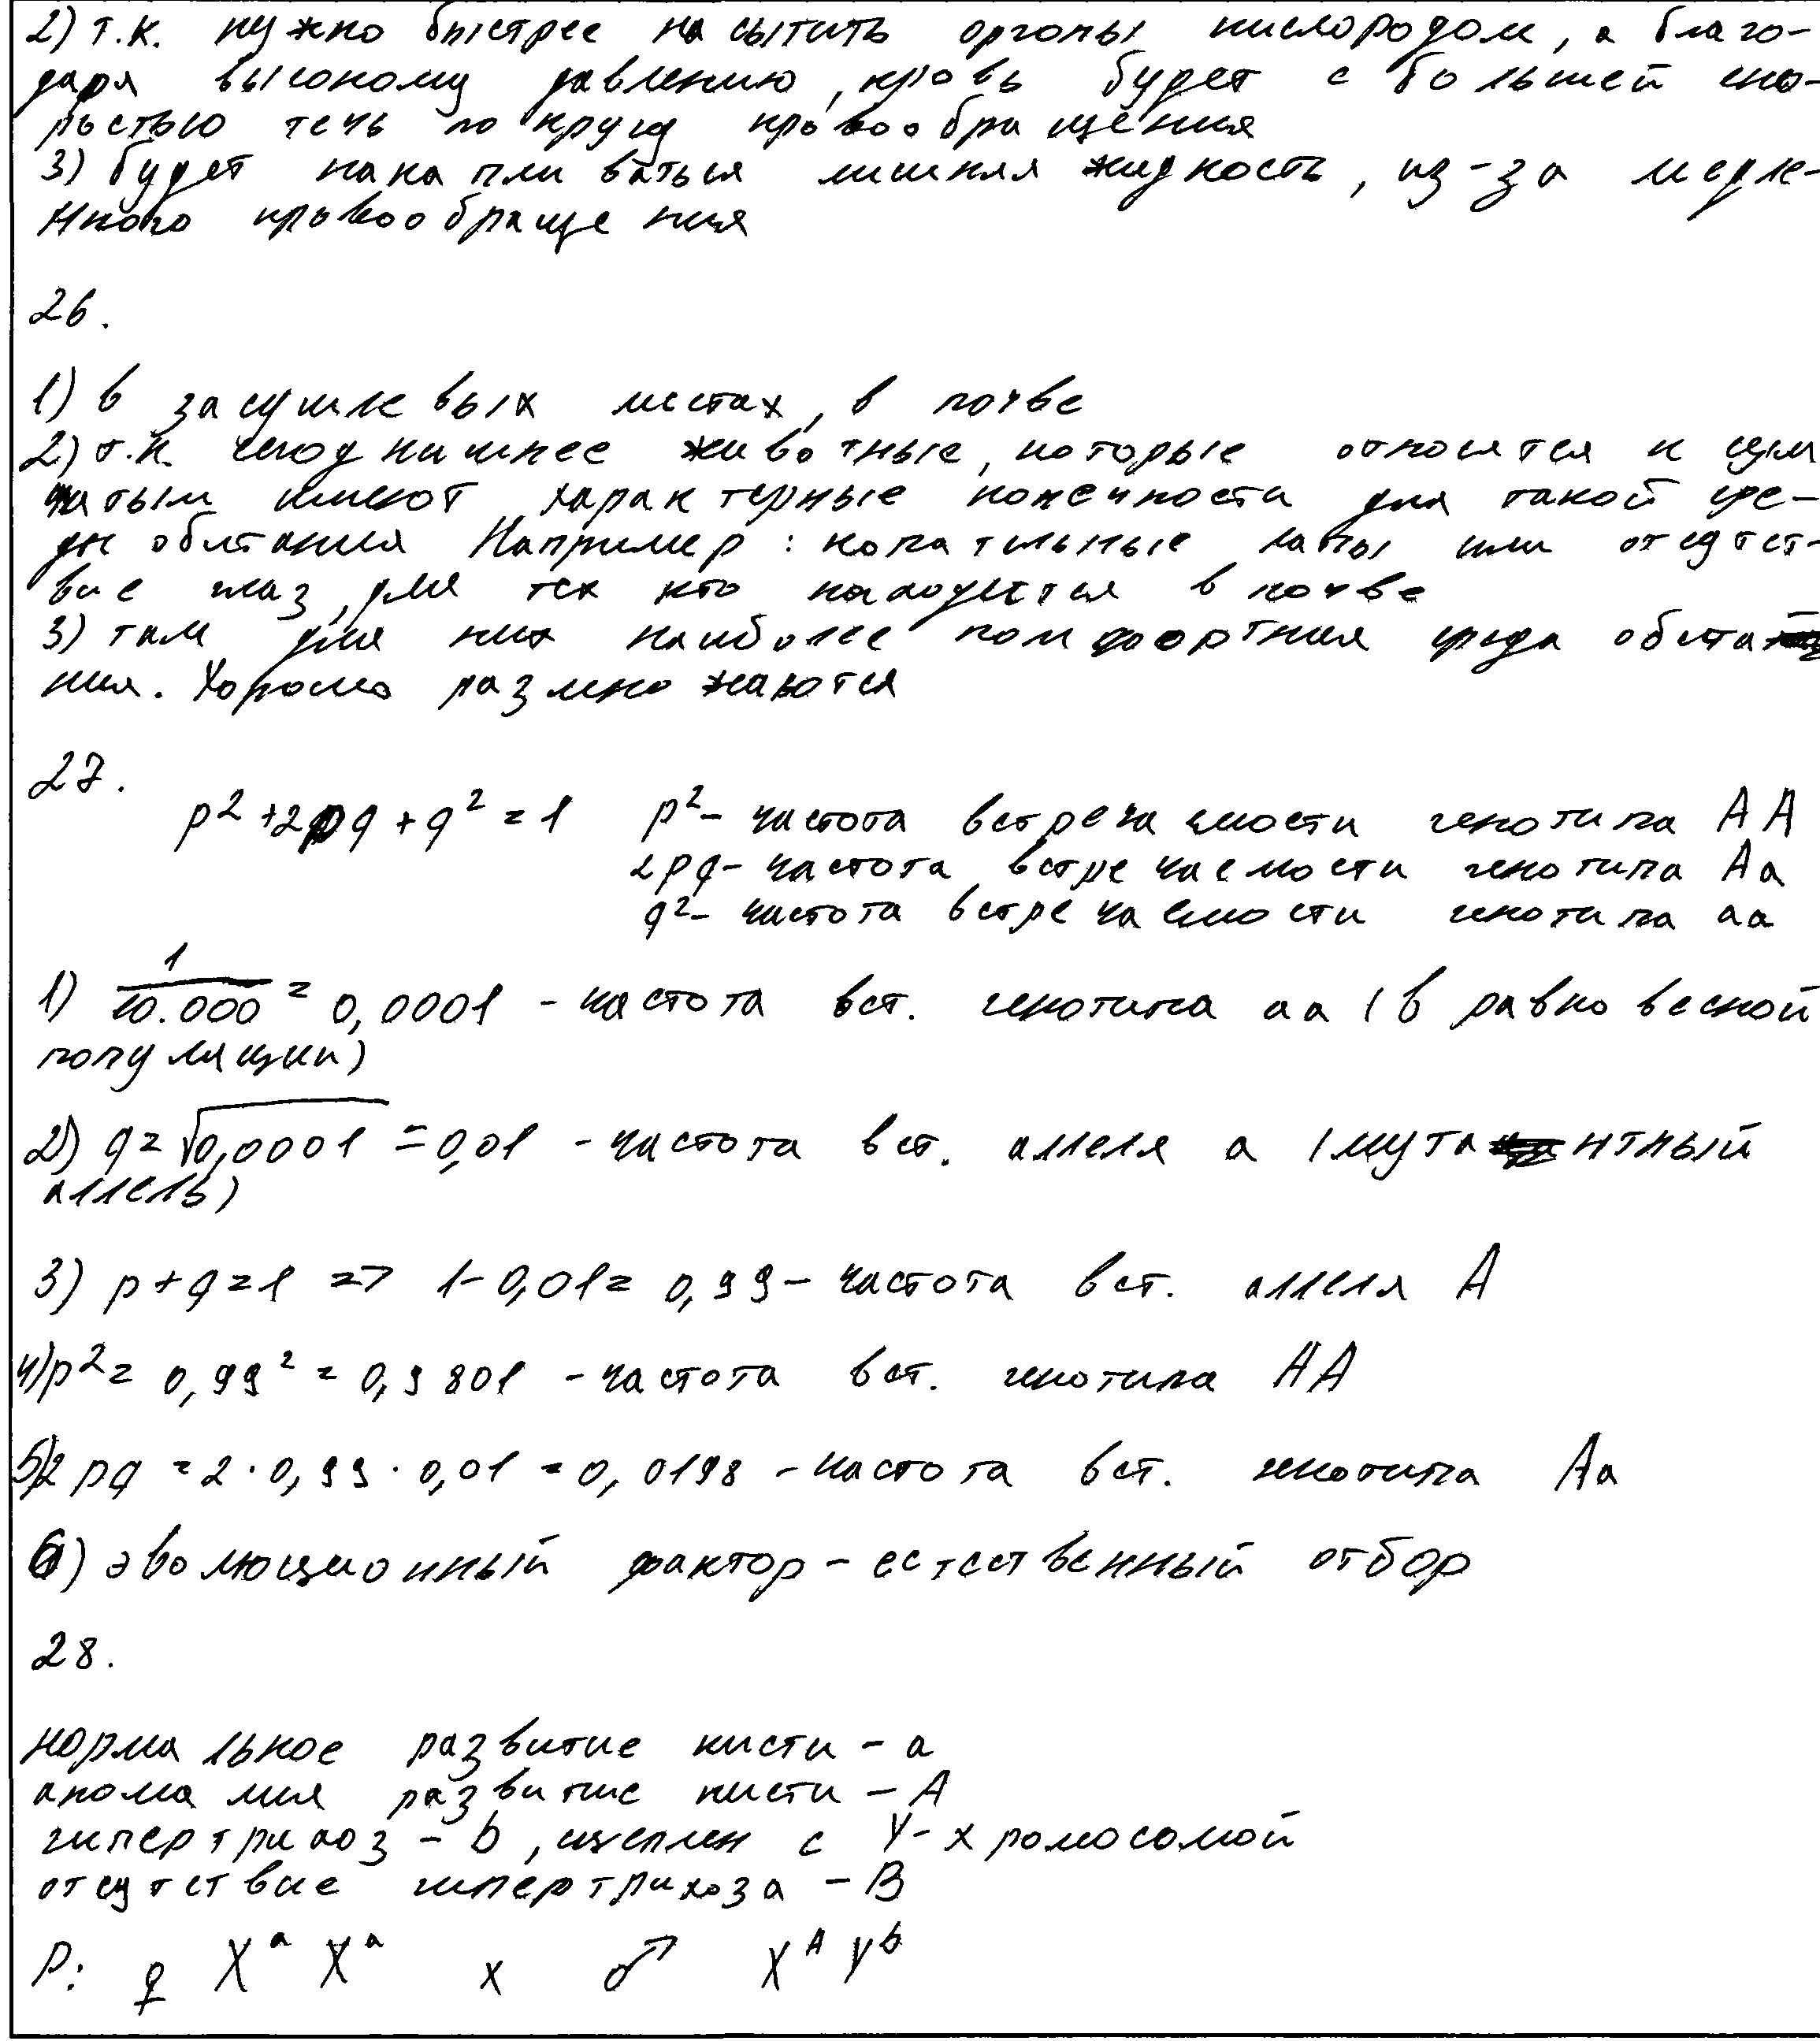 2) т.к. нужно быстрее насытить органы кислородом, а благо-
даря высокому давлению, кровь будет с большей ско-
ростью течь по кругу кровообращения
3) будет накапливаться лишняя жидкость, из-за медле-
нного кровообращения
26.
1) в засушливых местах, в почве
2) т.к. животные, которые относятся к сум
чатым имеют характерные конечности для такой сре-
ды обитания Например: копательные лапы или отсутст-
вие глаз, для тех кто находится в почве
3) там для них наиболее комфортная среда обита
ния. Хорошо размножаются
27.
p² + 2pq + q² = 1 p² - частота встречаемости генотипа AA
2pq - частота встречаемости генотипа Aa
q² - частота встречаемости генотипа aa
1) 1/10.000 = 0,0001 - частота вст. генотипа aa (в равновесной
популяции)
2) q = √0,0001 = 0,01 - частота вст. аллеля a (мутантный
аллель)
3) p + q = 1 => 1 - 0,01 = 0,99 - частота вст. аллеля A
4) p² = 0,99² = 0,9801 - частота вст. генотипа AA
5) 2pq = 2 · 0,99 · 0,01 = 0,0198 - частота вст. генотипа Aa
6) эволюционный фактор - естественный отбор
28.
нормальное развитие кисти - a
аномалия развитие кисти - A
гипертрихоз - b, сцеплен с Y-хромосомой
отсутствие гипертрихоза - B
P: ♀ Xᵃ Xᵃ x ♂ Xᴬ Yᵇ